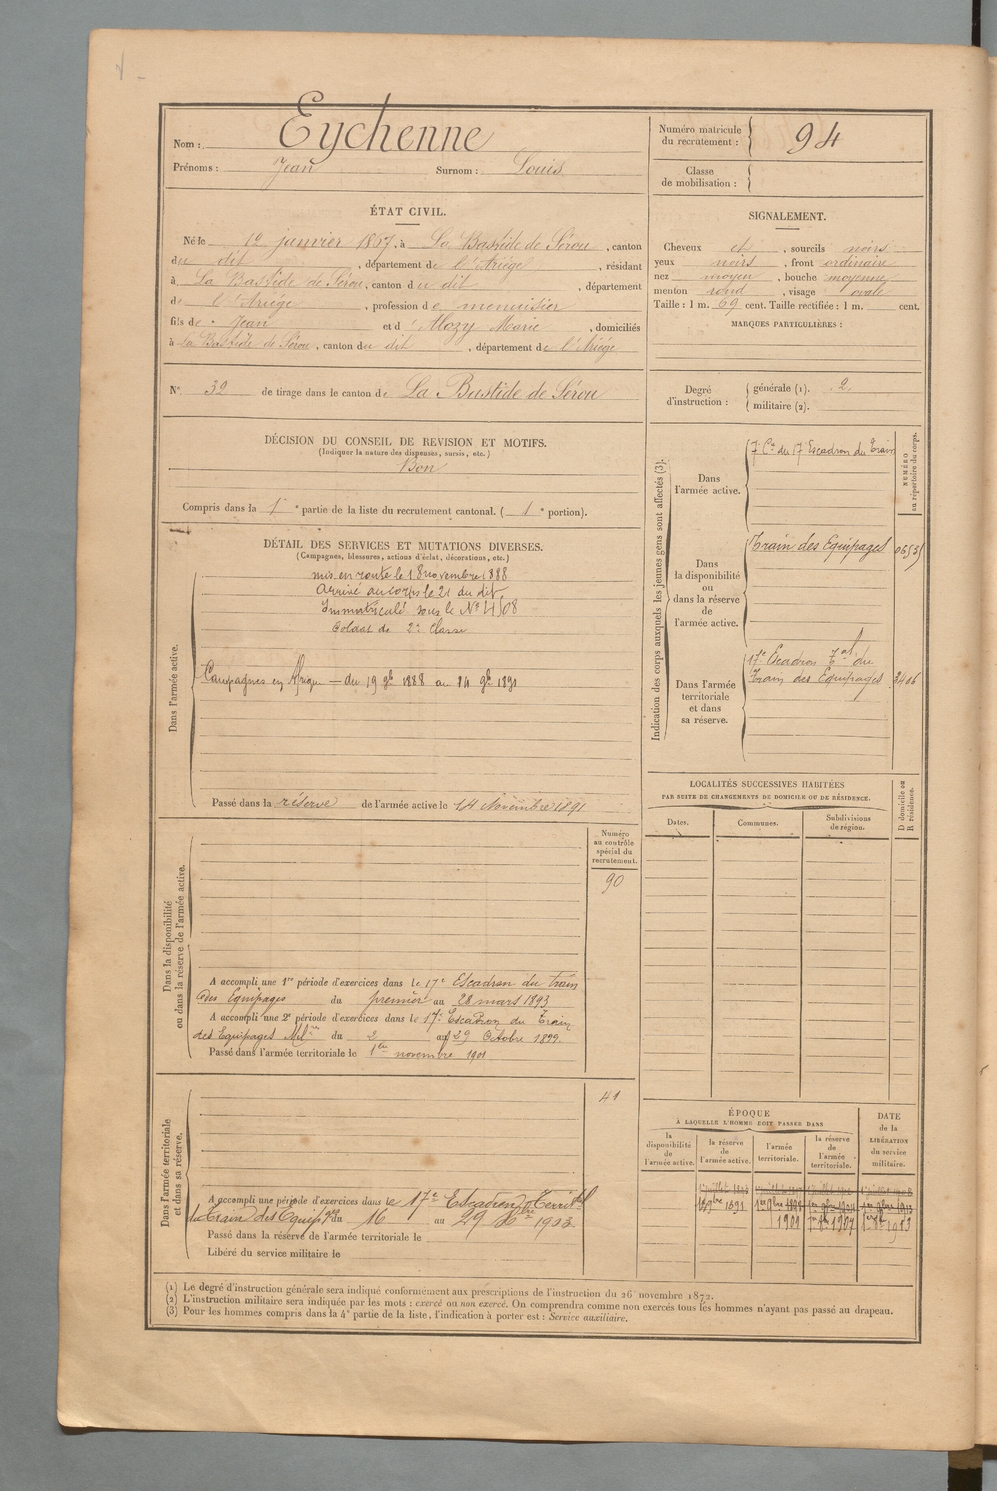 Nom : Eychenne
Prénoms : Jean Surnom : Louis
Numéro matricule du recrutement : 94
Classe de mobilisation :
ÉTAT CIVIL.
Né le 12 janvier 1867, à La Bastide de Sérou, canton
du dit, département de l'Ariége, résidant
à La Bastide de Sérou, canton du dit, département
de l'Ariége, profession de menuisier
fils de Jean et d'Alozy Marie, domiciliés
à la Bastide de Sérou, canton du dit, département de l'Ariége
SIGNALEMENT.
Cheveux et, sourcils noirs
yeux noirs, front ordinaire
nez moyen, bouche moyenne
menton rond, visage ovale
Taille : 1 m. 69 cent. Taille rectifiée : 1 m. cent.
MARQUES PARTICULIÈRES :
N° 32 de tirage dans le canton de La Bastide de Sérou
Degré d'instruction :
générale (1). 2
militaire (2).
DÉCISION DU CONSEIL DE REVISION ET MOTIFS.
(Indiquer la nature des dispenses, sursis, etc.)
Bon
Compris dans la 1e partie de la liste du recrutement cantonal. (1e portion).
DÉTAIL DES SERVICES ET MUTATIONS DIVERSES.
(Campagnes, blessures, actions d'éclat, décorations, etc.)
Dans l'armée active.
mis en route le 18 novembre 1888
Arrivé au corps le 21 du dit
Immatriculé sous le N° 4508
Soldat de 2e classe
Campagnes en Afrique — du 19 9bre 1888 au 14 9bre 1891
Passé dans la réserve de l'armée active le 14 Novembre 1891
Indication des corps auxquels les jeunes gens sont affectés (3).
NUMÉRO au répertoire du corps.
Dans l'armée active.
7e Cie du 17 Escadron du Train
Dans la disponibilité ou dans la réserve de l'armée active.
Train des Equipages
Dans l'armée territoriale et dans sa réserve.
17e Escadron Tal du
Train des Equipages 3406
LOCALITÉS SUCCESSIVES HABITÉES
PAR SUITE DE CHANGEMENTS DE DOMICILE OU DE RÉSIDENCE.
Dates. Communes. Subdivisions de région.
D domicile ou R résidence.
Dans la disponibilité ou dans la réserve de l'armée active.
Numéro au contrôle spécial du recrutement.
90
A accompli une 1re période d'exercices dans le 17e Escadron du train
des Equipages du premier au 28 mars 1893
A accompli une 2e période d'exercices dans le 17e Escadron du Train
des Equipages Milre du 2 au 29 Octobre 1899.
Passé dans l'armée territoriale le 1er novembre 1901
Dans l'armée territoriale et dans sa réserve.
41
A accompli une période d'exercices dans le 17e Escadron Territal
du Train des Equip. du 16 au 29 Xbre 1903
Passé dans la réserve de l'armée territoriale le
Libéré du service militaire le
ÉPOQUE
À LAQUELLE L'HOMME DOIT PASSER DANS
la disponibilité de l'armée active.
la réserve de l'armée active.
l'armée territoriale.
la réserve de l'armée territoriale.
DATE de la LIBÉRATION du service militaire.
(1) Le degré d'instruction générale sera indiqué conformément aux prescriptions de l'instruction du 26 novembre 1872.
(2) L'instruction militaire sera indiquée par les mots : exercé ou non exercé. On comprendra comme non exercés tous les hommes n'ayant pas passé au drapeau.
(3) Pour les hommes compris dans la 4e partie de la liste, l'indication à porter est : Service auxiliaire.